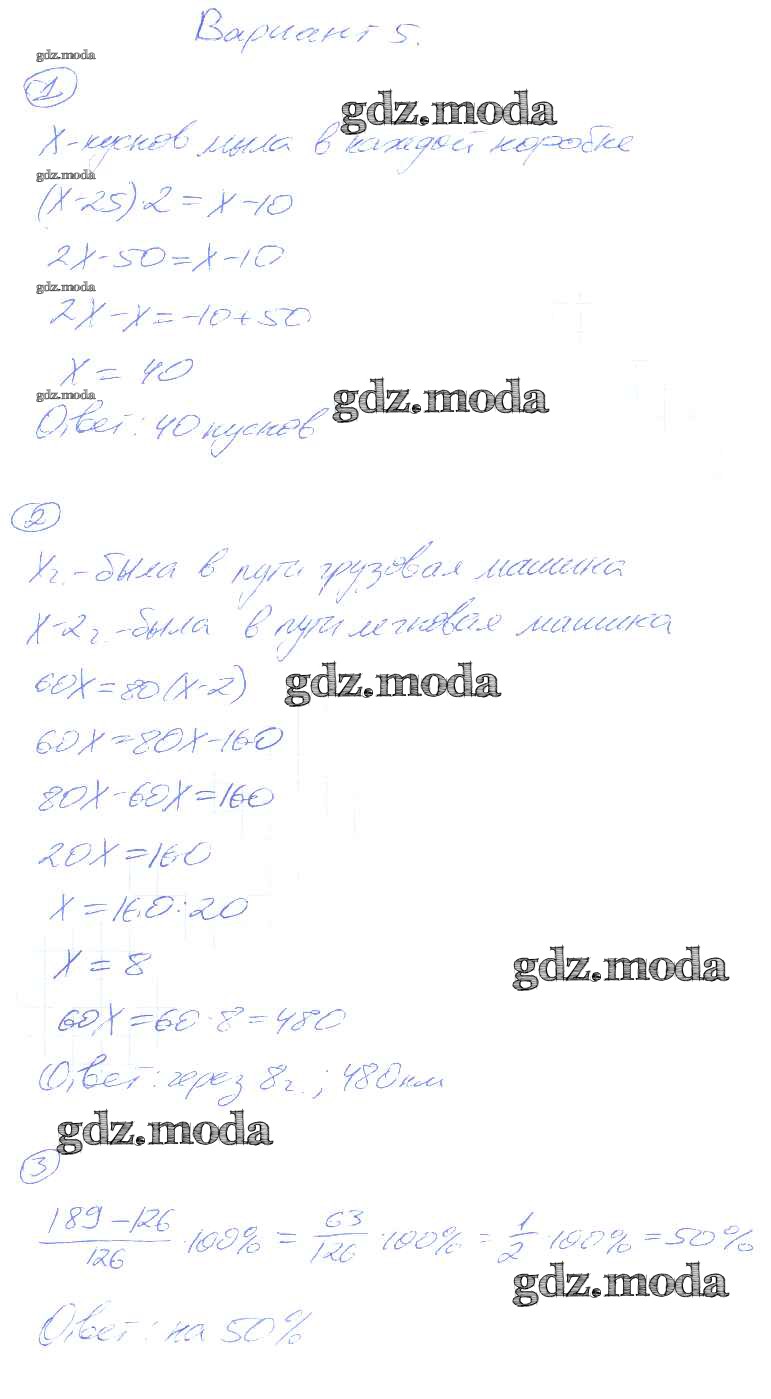 Вариант 5.
gdz.moda
1
gdz.moda
X - кусков мыла в каждой коробке
gdz.moda
(X-25)·2 = X-10
2X-50=X-10
gdz.moda
2X-X=-10+50
X = 40
gdz.moda
gdz.moda
Ответ: 40 кусков
2
Xч. - была в пути грузовая машина
X-2ч. - была в пути легковая машина
60X=80(X-2)
gdz.moda
60X=80X-160
80X-60X=160
20X=160
X=160:20
X = 8
gdz.moda
60X=60·8=480
Ответ: через 8ч.; 480км
gdz.moda
3
189-126/126 ·100% = 63/126 ·100% = 1/2 ·100% = 50%
gdz.moda
Ответ: на 50%